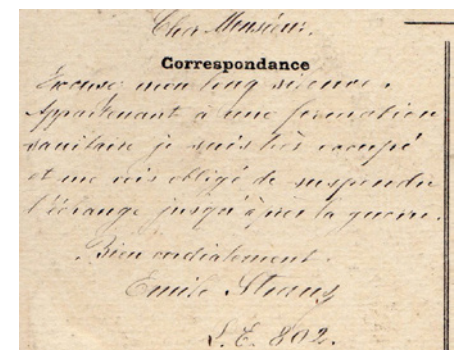 Cher Monsieur.
Correspondance
Excusez mon long silence.
Appartenant à une formation
sanitaire je suis très occupé
et me vois obligé de suspendre
l'échange jusqu'après la guerre.
Bien cordialement.
Emile Straus
L.E. 802.